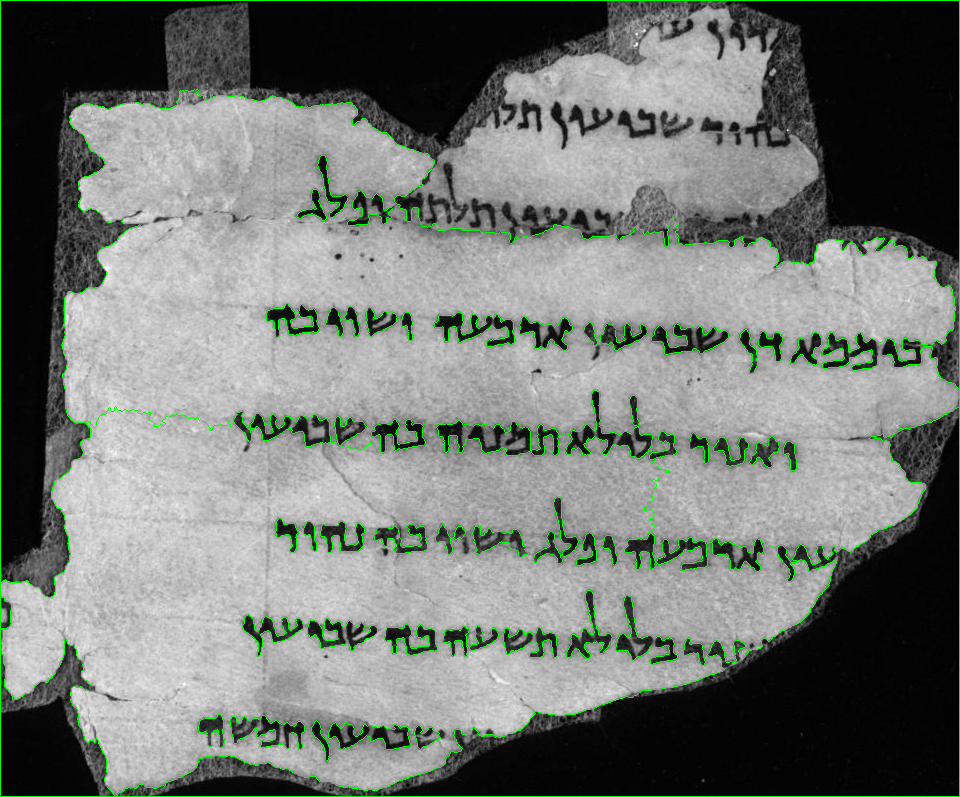 דין
נהור שביעין תלת
שביעין תלתה ופלג
ביממא דן שביעין ארבעה ושוי בה
ואניר בליליא תמניה בה שביעין
עין ארבעה ופלג ושוי בה נהור
ניר בליליא תשעה בה שביעין
שביעין חמשה